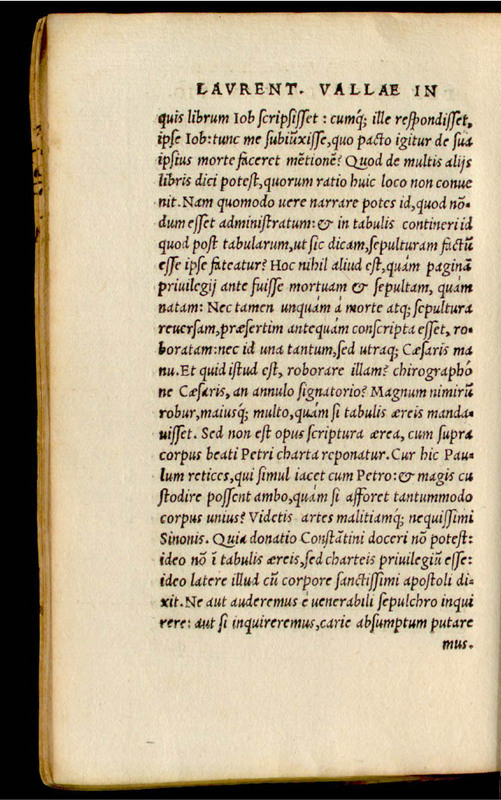 LAVRENT. VALLAE IN
quis librum Iob scripsisset : cumq́; ille respondisset,
ipse Iob: tunc me subiũxisse, quo pacto igitur de sua
ipsius morte faceret mẽtionẽ? Quod de multis alijs
libris dici potest, quorum ratio huic loco non conue
nit. Nam quomodo uere narrare potes id, quod nõ-
dum esset administratum: & in tabulis contineri id
quod post tabularum, ut sic dicam, sepulturam factũ
esse ipse fateatur? Hoc nihil aliud est, quám paginã
priuilegij ante fuisse mortuam & sepultam, quám
natam: Nec tamen unquám á morte atq; sepultura
reuersam, præsertim antequám conscripta esset, ro-
boratam: nec id una tantum, sed utraq; Cæsaris ma
nu. Et quid istud est, roborare illam? chirographó
ne Cæsaris, an annulo signatorio? Magnum nimirũ
robur, maiusq; multo, quám si tabulis æreis manda-
uisset. Sed non est opus scriptura ærea, cum supra
corpus beati Petri charta reponatur. Cur hic Pau-
lum retices, qui simul iacet cum Petro: & magis cu
stodire possent ambo, quám si afforet tantummodo
corpus unius? Videtis artes malitiamq́; nequissimi
Sinonis. Quia donatio Constãtini doceri nõ potest:
ideo nõ ĩ tabulis æreis, sed charteis priuilegiũ esse:
ideo latere illud cũ corpore sanctissimi apostoli di-
xit. Ne aut auderemus é uenerabili sepulchro inqui
rere: aut si inquireremus, carie absumptum putare
mus.